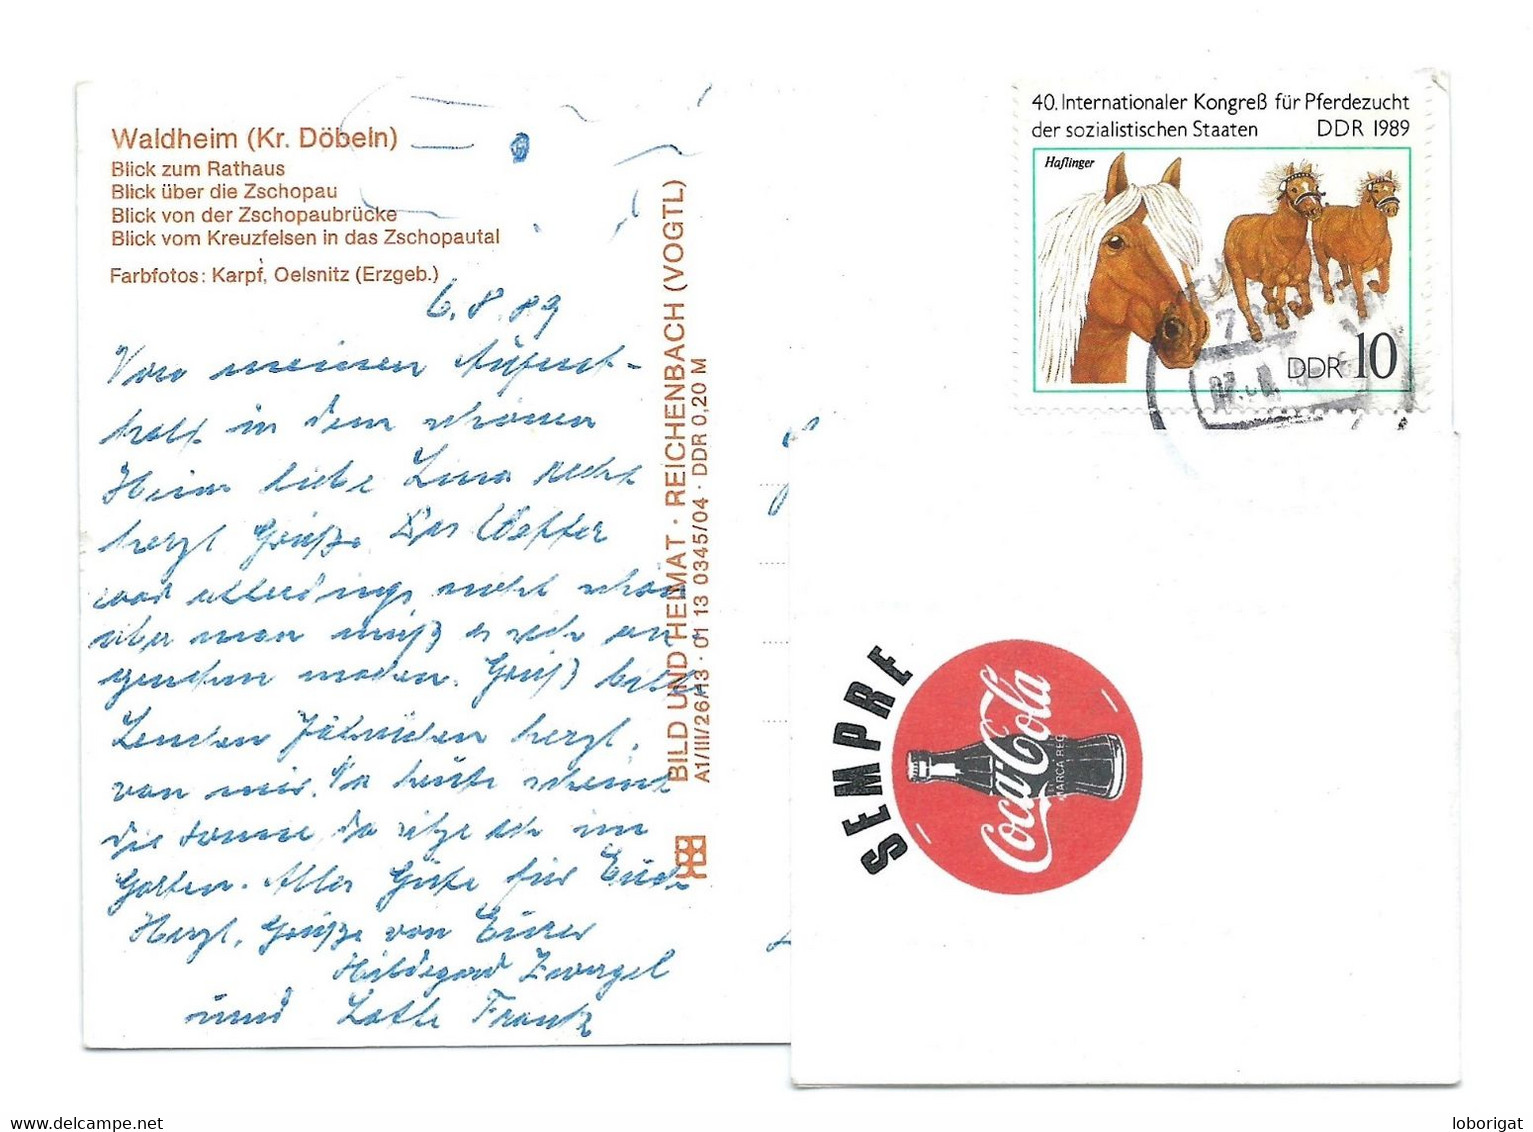 Waldheim (Kr. Döbeln)
Blick zum Rathaus
Blick über die Zschopau
Blick von der Zschopaubrücke
Blick vom Kreuzfelsen in das Zschopautal
Farbfotos: Karpf, Oelsnitz (Erzgeb.)
6.8.89
Von meinem Aufent-
halt in dem schönen
Heim liebe Lina recht
herzl Grüße. Das Wetter
war allerdings nicht schön
aber man muß es sich an-
genehm machen. Grüß bitte
herzl.
von mir. Da heute scheint
die Sonne da sitze ich im
Garten. Alles Gute für Euch
Herzl. Grüße von Eurer
Hildegard Zwergel
und Lotte Frank
BILD UND HEIMAT · REICHENBACH (VOGTL)
A1/III/26/13 · 01 13 0345/04 · DDR 0,20 M
40. Internationaler Kongreß für Pferdezucht
der sozialistischen Staaten DDR 1989
Haflinger
DDR 10
SEMPRE
Coca-Cola
MARCA REG
loborigat